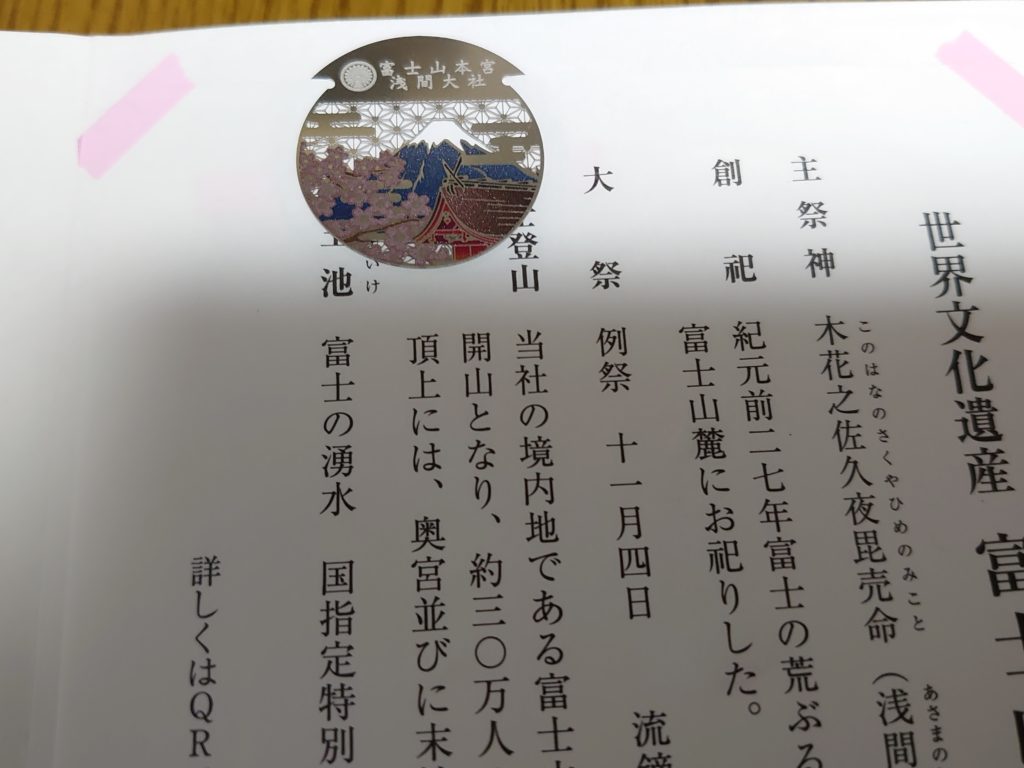 富士山本宮
浅間大社
世界文化遺産 富士
主祭神 木花之佐久夜毘売命（浅間
このはなのさくやひめのみこと あさまの
創祀 紀元前二七年富士の荒ぶる
富士山麓にお祀りした。
大祭 例祭 十一月四日 流鏑
登山 当社の境内地である富士
開山となり、約三〇万人
頂上には、奥宮並びに末
池 富士の湧水 国指定特別
いけ
詳しくはQR